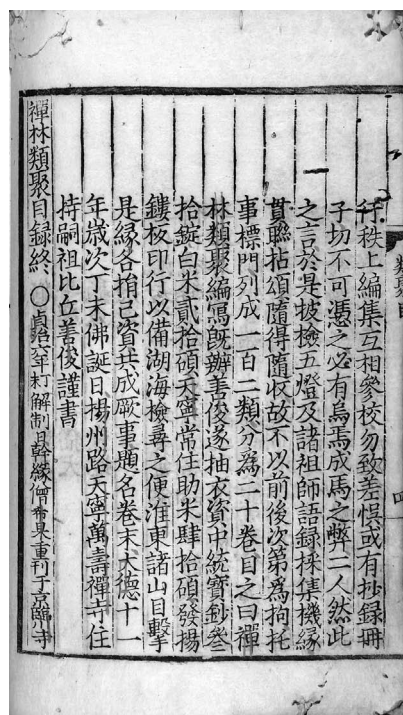 行秩上編集互相參校勿致差悞或有抄録冊
子切不可憑之必有烏焉成馬之弊二人然此
之言於是披檢五燈及諸祖師語録採集機緣
貫聯拈頌隨得隨收故不以前後次第為拘托
事標門列成一百二類分為二十卷目之曰禪
林類聚編寫既辦善俊遂抽衣資中統寶鈔叄
拾錠白米貳拾碩天寧常住助米肆拾碩發揚
鏤板印行以備湖海檢尋之便淮東諸山目擊
是緣各捐己資共成厥事題名卷末大德十一
年歲次丁未佛誕日揚州路天寧萬壽禪寺住
持嗣祖比丘善俊謹書
禪林類聚目録終 〇貞治六年丁未解制日幹緣僧希杲重刊于京臨川寺
類聚目
四